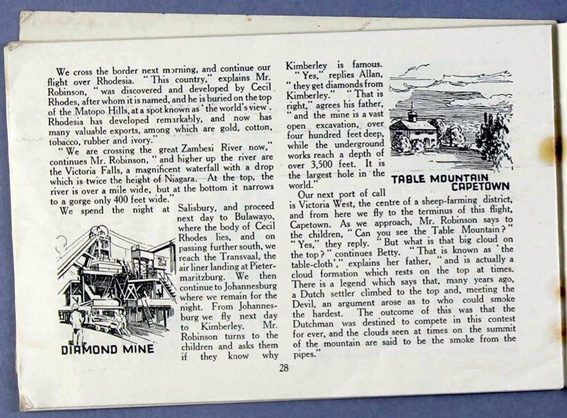 We cross the border next morning, and continue our
flight over Rhodesia. "This country," explains Mr.
Robinson, "was discovered and developed by Cecil
Rhodes, after whom it is named, and he is buried on the top
of the Matopo Hills, at a spot known as 'the world's view'.
Rhodesia has developed remarkably, and now has
many valuable exports, among which are gold, cotton,
tobacco, rubber and ivory."
"We are crossing the great Zambesi River now,"
continues Mr. Robinson, "and higher up the river are
the Victoria Falls, a magnificent waterfall with a drop
which is twice the height of Niagara. At the top, the
river is over a mile wide, but at the bottom it narrows
to a gorge only 400 feet wide."
We spend the night at Salisbury, and proceed
next day to Bulawayo,
where the body of Cecil
Rhodes lies, and on
passing further south, we
reach the Transvaal, the
air liner landing at Pieter-
maritzburg. We then
continue to Johannesburg
where we remain for the
night. From Johannes-
burg we fly next day
to Kimberley. Mr.
Robinson turns to the
children and asks them
if they know why
DIAMOND MINE
Kimberley is famous.
"Yes," replies Allan,
"they get diamonds from
Kimberley." "That is
right," agrees his father,
"and the mine is a vast
open excavation, over
four hundred feet deep,
while the underground
works reach a depth of
over 3,500 feet. It is
the largest hole in the
world."
TABLE MOUNTAIN
CAPETOWN
Our next port of call
is Victoria West, the centre of a sheep-farming district,
and from here we fly to the terminus of this flight,
Capetown. As we approach, Mr. Robinson says to
the children, "Can you see the Table Mountain?"
"Yes," they reply. "But what is that big cloud on
the top?" continues Betty. "That is known as 'the
table-cloth'," explains her father, "and is actually a
cloud formation which rests on the top at times.
There is a legend which says that, many years ago,
a Dutch settler climbed to the top and, meeting the
Devil, an argument arose as to who could smoke
the hardest. The outcome of this was that the
Dutchman was destined to compete in this contest
for ever, and the clouds seen at times on the summit
of the mountain are said to be the smoke from the
pipes."
28